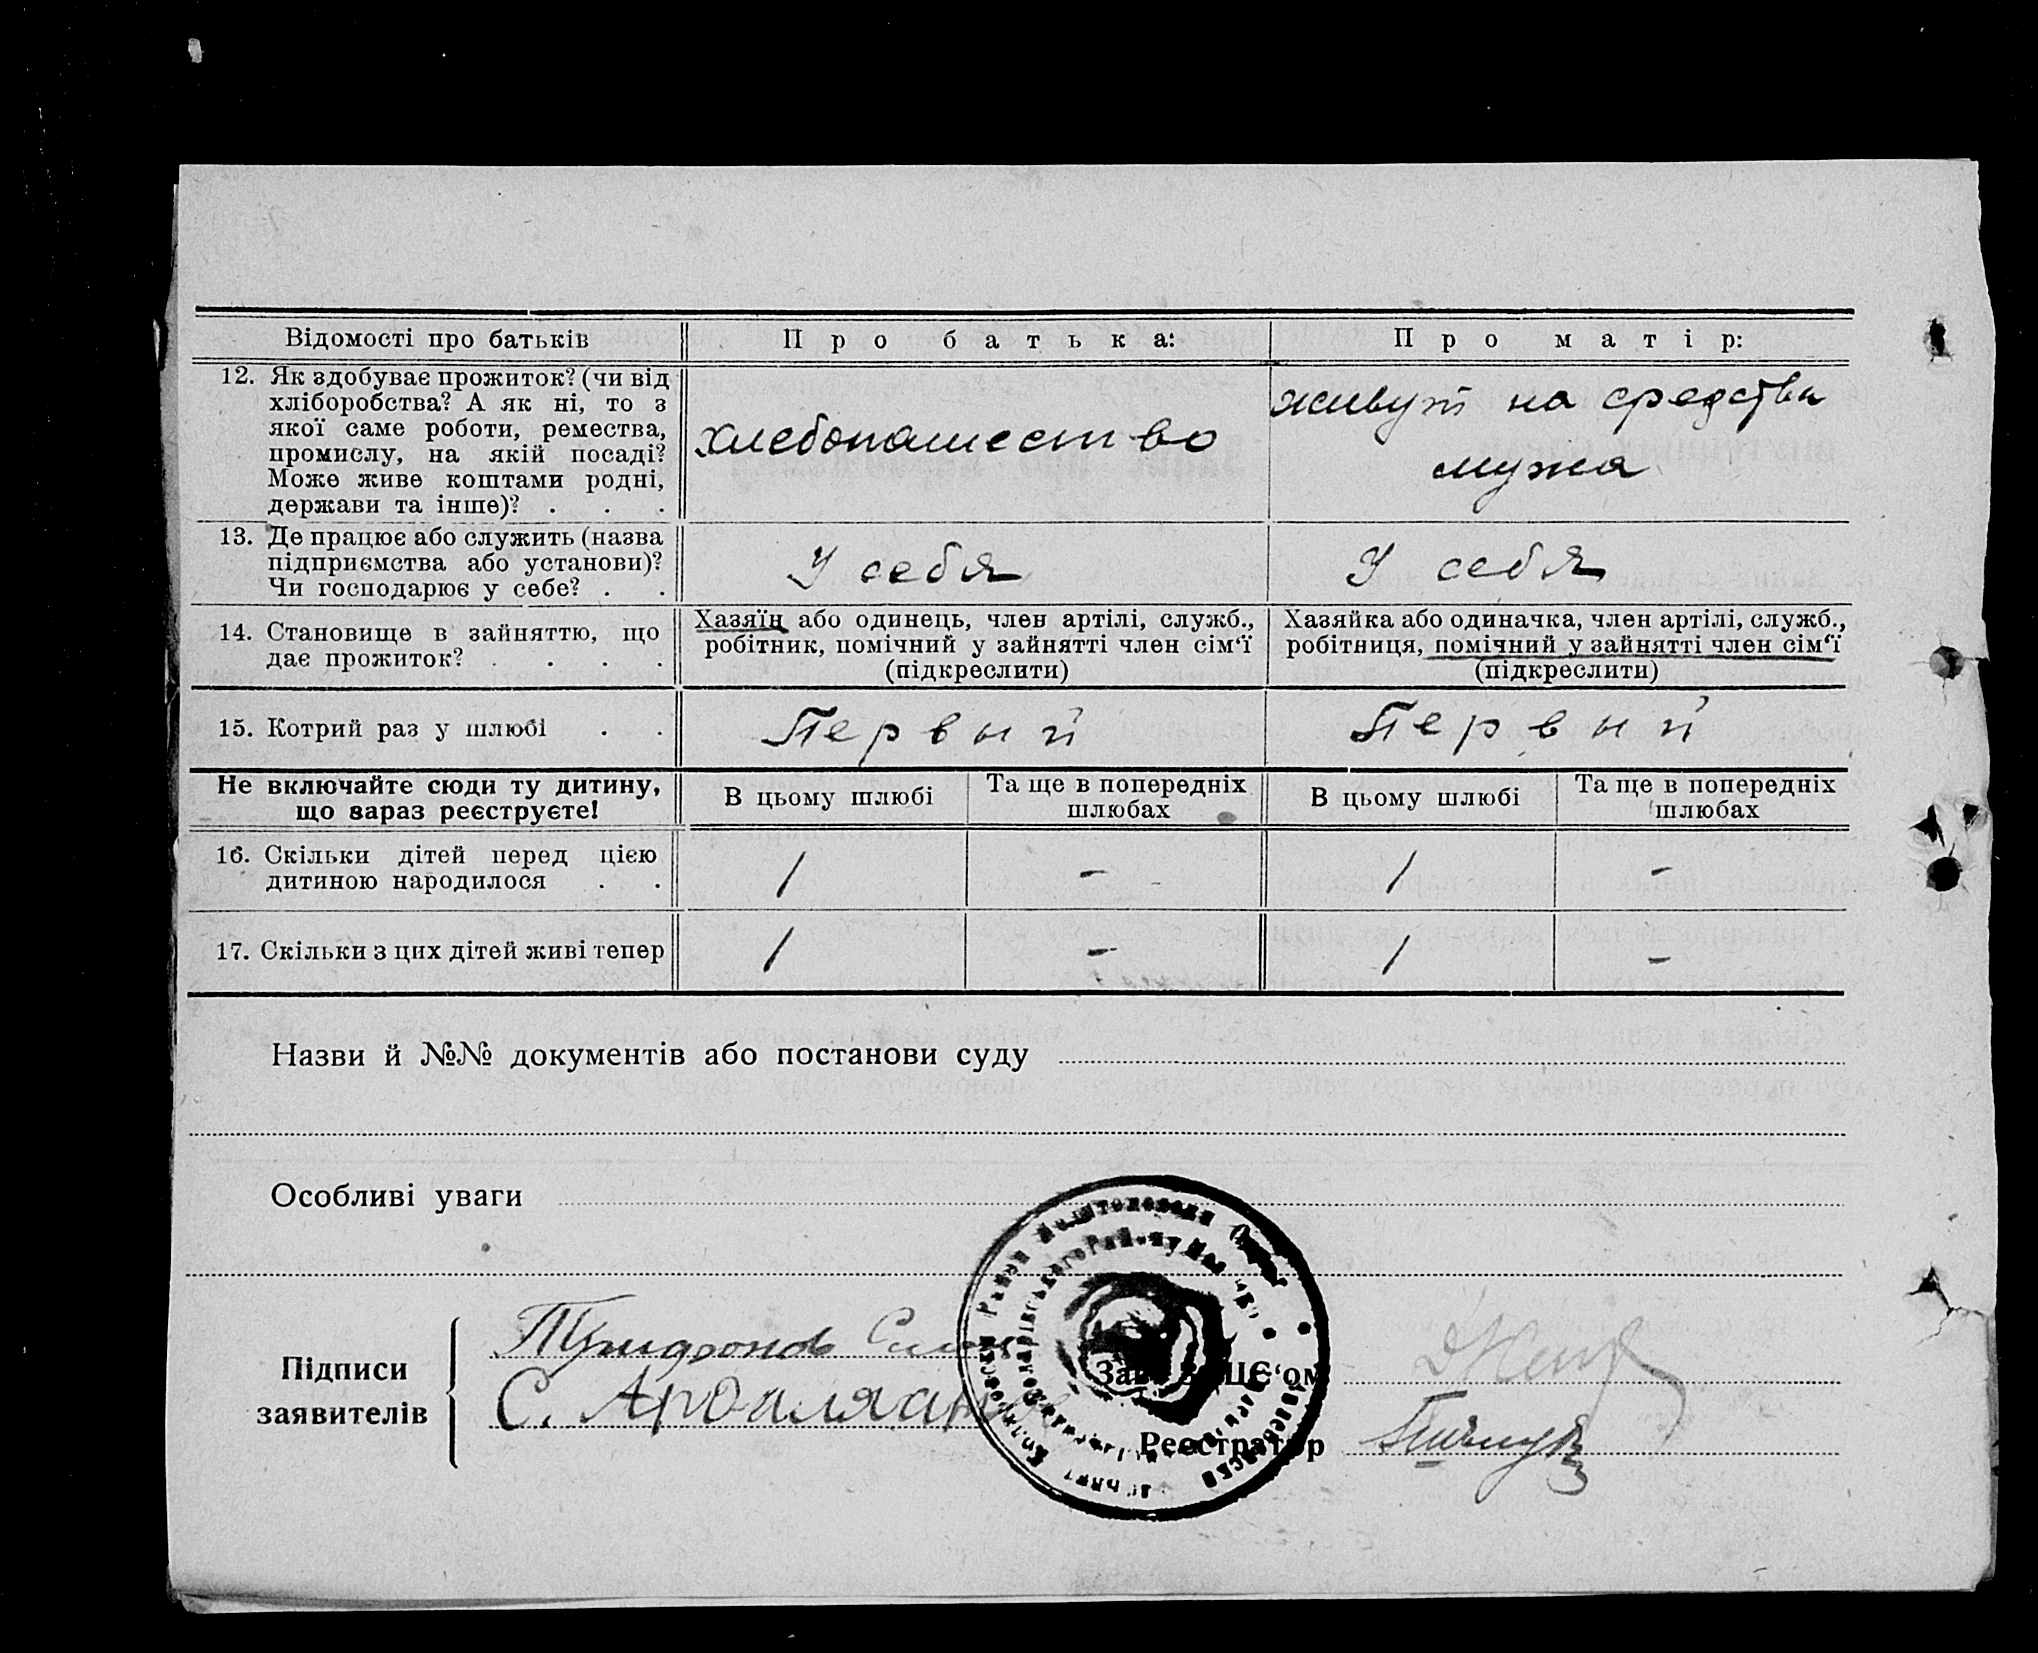 Відомості про батьків
Про батька:
Про матір:
12. Як здобуває прожиток? (чи від
хліборобства? А як ні, то з
якої саме роботи, ремества,
промислу, на якій посаді?
Може живе коштами родні,
держави та інше)? . . .
хлебопашество
живут на средства
мужа
13. Де працює або служить (назва
підприємства або установи)?
Чи господарює у себе? . .
У себя
У себя
14. Становище в зайняттю, що
дає прожиток? . . . .
Хазяїн або одинець, член артілі, служб.,
робітник, помічний у зайнятті член сім'ї
(підкреслити)
Хазяйка або одиначка, член артілі, служб.,
робітниця, помічний у зайнятті член сім'ї
(підкреслити)
15. Котрий раз у шлюбі . .
Первый
Первый
Не включайте сюди ту дитину,
що зараз реєструєте!
В цьому шлюбі
Та ще в попередніх
шлюбах
В цьому шлюбі
Та ще в попередніх
шлюбах
16. Скільки дітей перед цією
дитиною народилося . .
1
-
1
-
17. Скільки з цих дітей живі тепер
1
-
1
-
Назви й №№ документів або постанови суду
Особливі уваги
Підписи
заявителів
С.
Зав. ЗАЦЄ'ом
Реєстратор